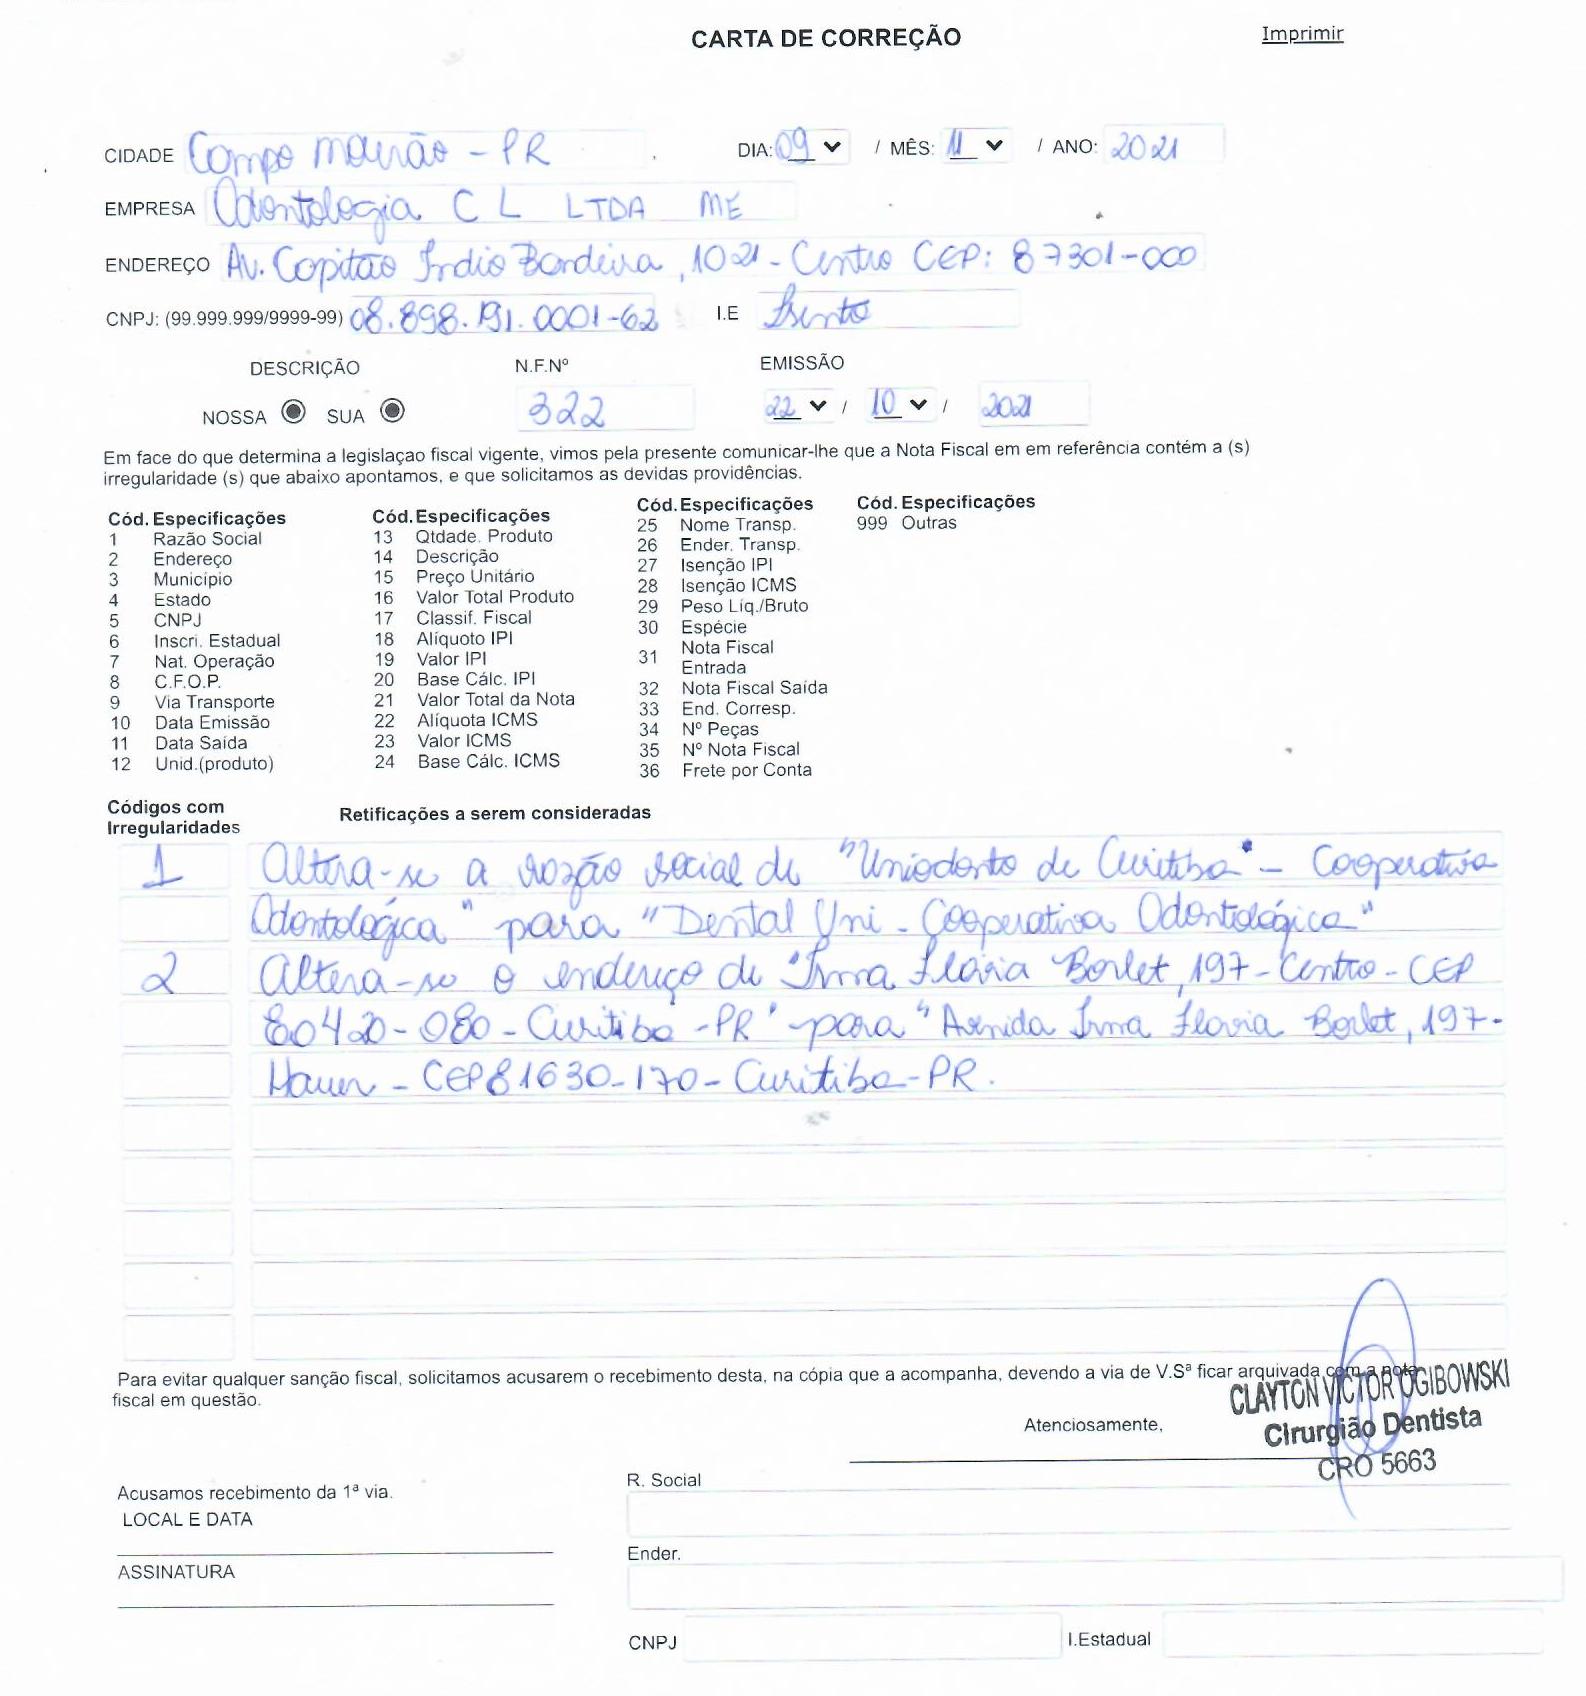 CARTA DE CORREÇÃO Imprimir
CIDADE Campo Mourão - PR DIA: 09 / MÊS: 11 / ANO: 2021
EMPRESA Odontologia C L LTDA ME
ENDEREÇO Av. Capitão Índio Bandeira, 1021 - Centro CEP: 87301-000
CNPJ: (99.999.999/9999-99) 08.898.191.0001-62 I.E Isento
DESCRIÇÃO N.F.Nº EMISSÃO
NOSSA SUA 322 22 / 10 / 2021
Em face do que determina a legislaçao fiscal vigente, vimos pela presente comunicar-lhe que a Nota Fiscal em em referência contém a (s)
irregularidade (s) que abaixo apontamos, e que solicitamos as devidas providências.
Cód. Especificações
1 Razão Social
2 Endereço
3 Município
4 Estado
5 CNPJ
6 Inscri. Estadual
7 Nat. Operação
8 C.F.O.P.
9 Via Transporte
10 Data Emissão
11 Data Saída
12 Unid.(produto)
Cód. Especificações
13 Qtdade. Produto
14 Descrição
15 Preço Unitário
16 Valor Total Produto
17 Classif. Fiscal
18 Alíquoto IPI
19 Valor IPI
20 Base Cálc. IPI
21 Valor Total da Nota
22 Alíquota ICMS
23 Valor ICMS
24 Base Cálc. ICMS
Cód. Especificações
25 Nome Transp.
26 Ender. Transp.
27 Isenção IPI
28 Isenção ICMS
29 Peso Líq./Bruto
30 Espécie
31 Nota Fiscal
Entrada
32 Nota Fiscal Saída
33 End. Corresp.
34 Nº Peças
35 Nº Nota Fiscal
36 Frete por Conta
Cód. Especificações
999 Outras
Códigos com
Irregularidades
Retificações a serem consideradas
1 Altera-se a razão social de "Uniodonto de Curitiba" - Cooperativa
Odontológica" para "Dental Uni - Cooperativa Odontológica"
2 Altera-se o endereço de "Irma Flavia Borlet, 197 - Centro - CEP
80420-080 - Curitiba - PR" para "Avenida Irma Flavia Borlet, 197 -
Hauer - CEP 81630-170 - Curitiba - PR.
Para evitar qualquer sanção fiscal, solicitamos acusarem o recebimento desta, na cópia que a acompanha, devendo a via de V.Sª ficar arquivada com a nota
fiscal em questão.
Atenciosamente,
CLAYTON VICTOR OGIBOWSKI
Cirurgião Dentista
CRO 5663
Acusamos recebimento da 1ª via.
LOCAL E DATA
ASSINATURA
R. Social
Ender.
CNPJ I.Estadual